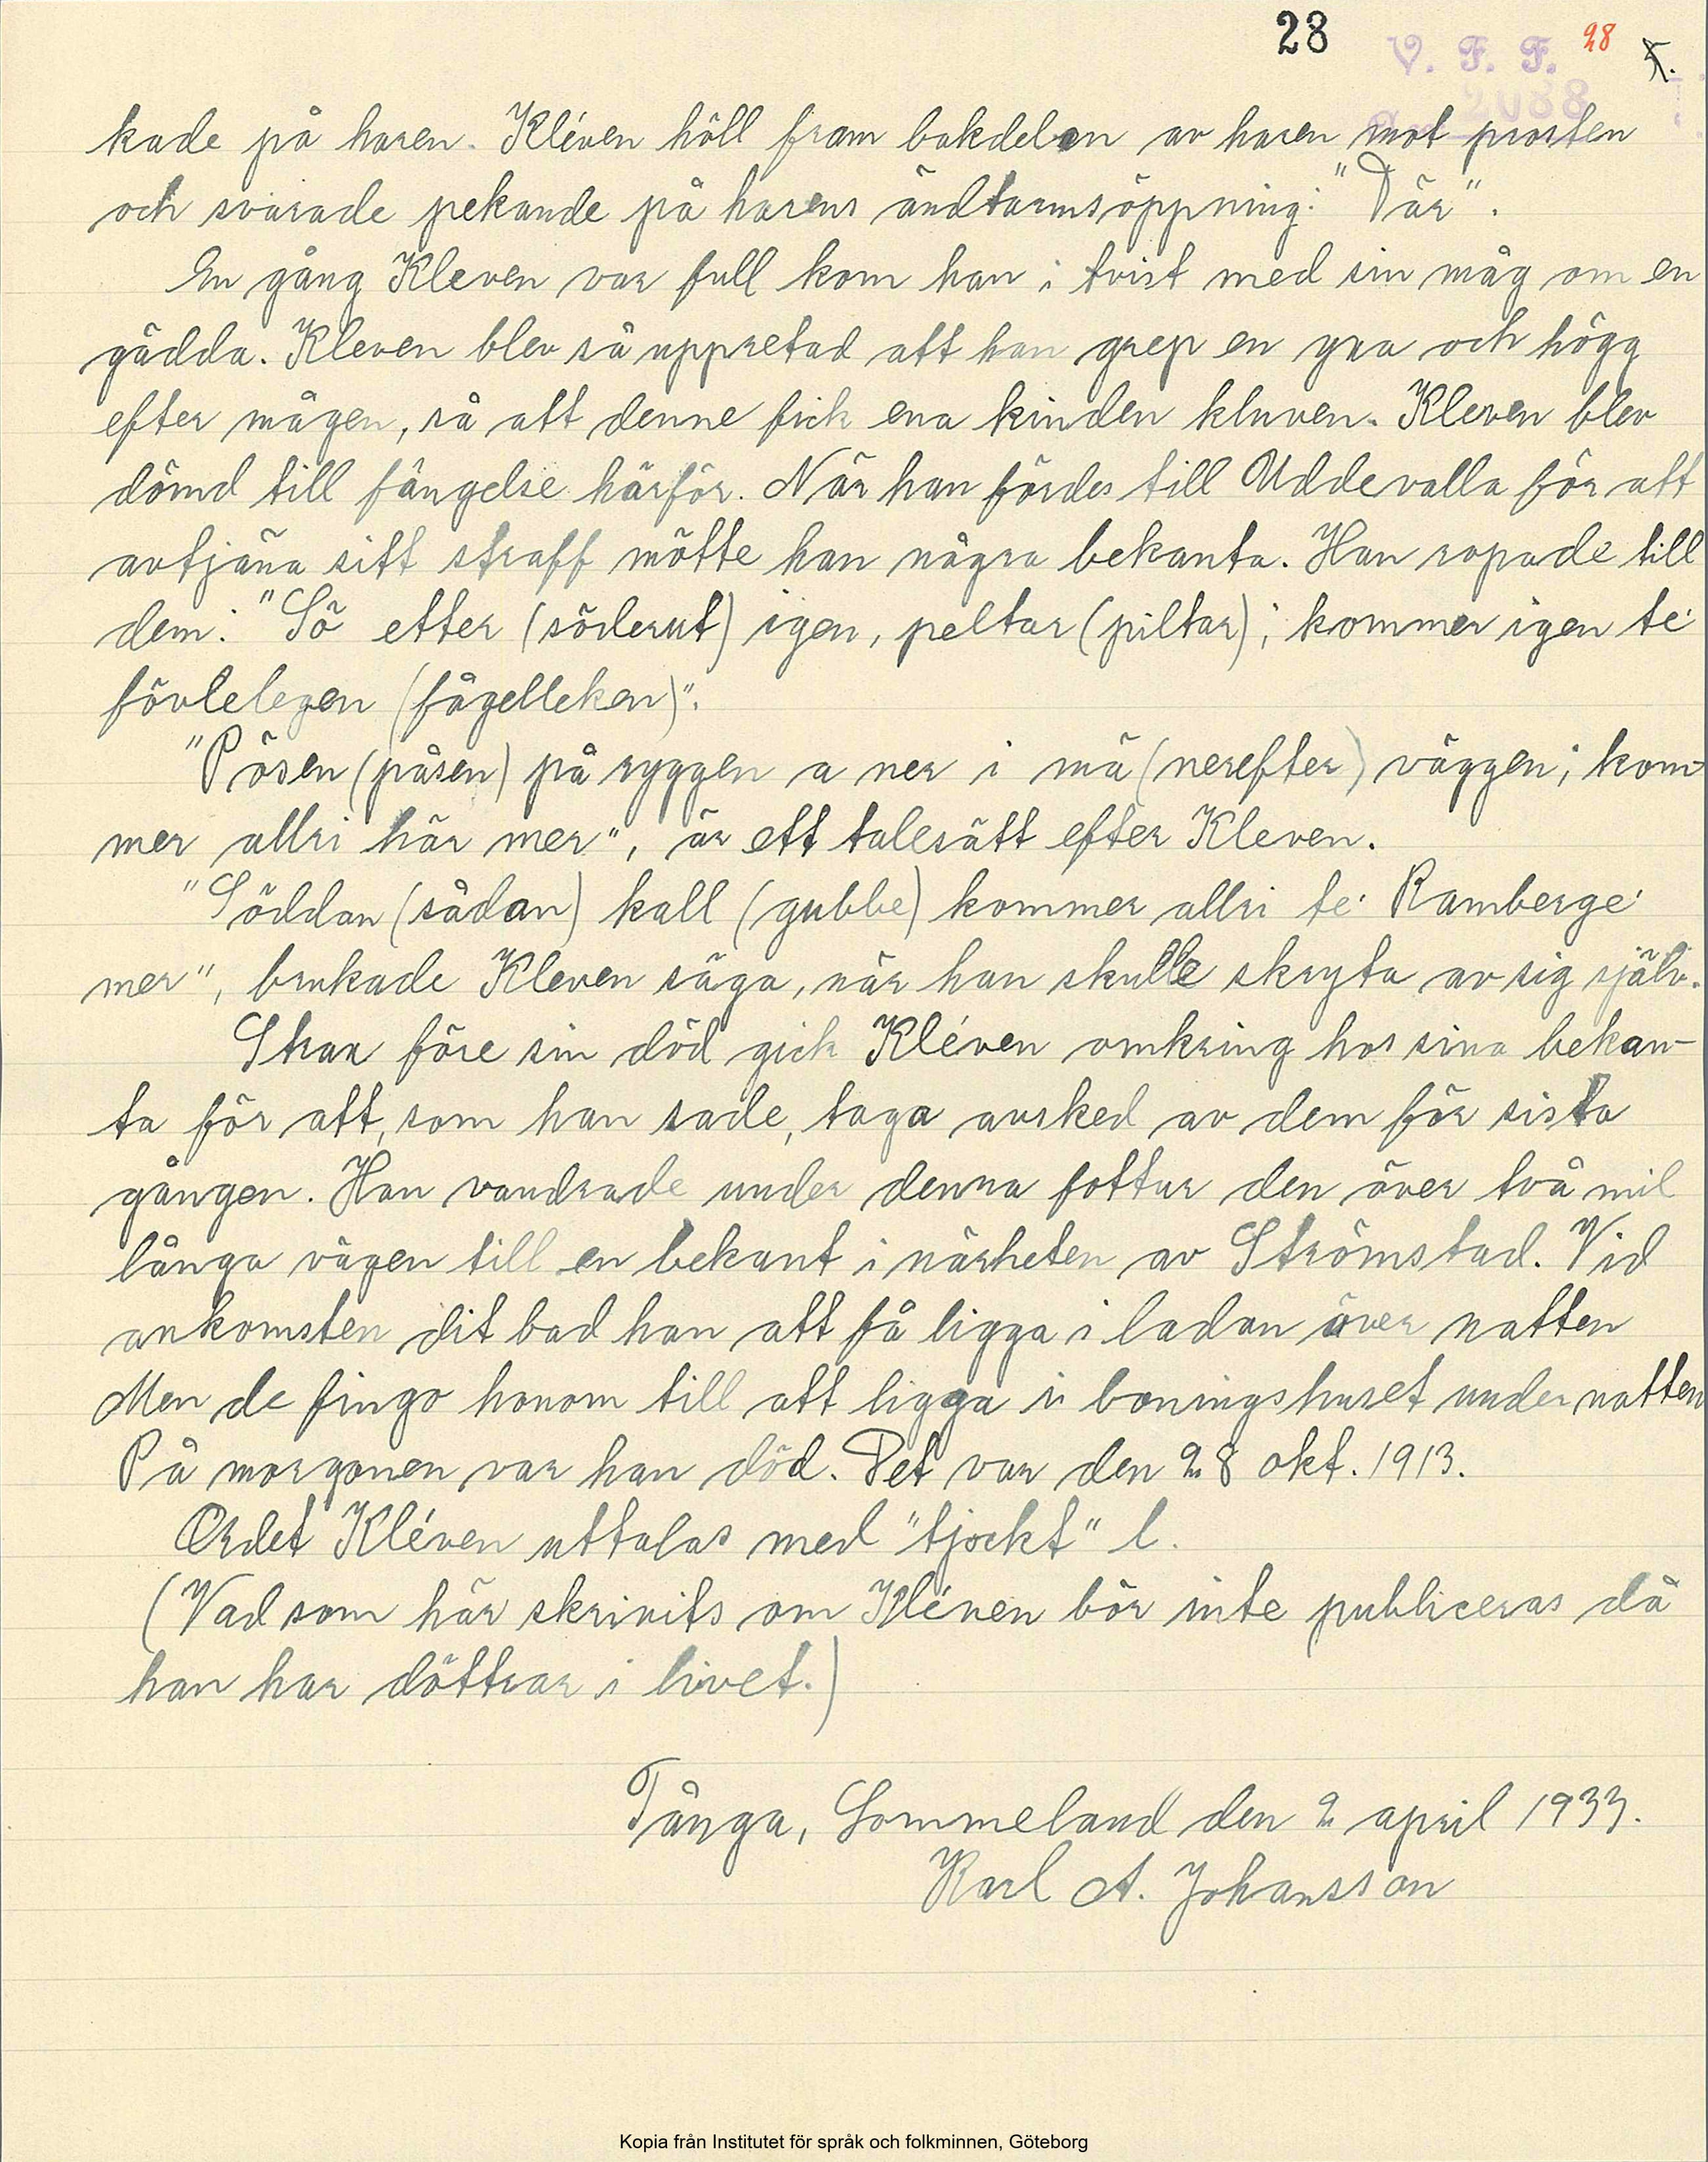 28 V. F. F. 28 5.
2088
kade på haren. Kléven höll fram bakdelen av haren mot prosten
och svarade pekande på harens ändtarmsöppning: "Där".
En gång Kleven var full kom han i tvist med sin måg om en
gädda. Kleven blev så uppretad att han grep en yxa och högg
efter mågen, så att denne fick ena kinden kluven. Kleven blev
dömd till fängelse härför. När han fördes till Uddevalla för att
avtjäna sitt straff mötte han några bekanta. Han ropade till
dem: "Sö etter (söderut) igen, peltar (piltar); kommer igen te'
fövlelegen (fågelleken)".
"Pösen (påsen) på ryggen a ner i mä (nerefter) väggen; kom-
mer allri här mer", är ett talesätt efter Kleven.
"Söddan (sådan) kall (gubbe) kommer allri te' Ramberge'
mer", brukade Kleven säga, när han skulle skryta av sig själv.
Strax före sin död gick Kléven omkring hos sina bekan-
ta för att, som han sade, taga avsked av dem för sista
gången. Han vandrade under denna fottur den över två mil
långa vägen till en bekant i närheten av Strömstad. Vid
ankomsten dit bad han att få ligga i ladan över natten
Men de fingo honom till att ligga i boningshuset under natten
På morgonen var han död. Det var den 28 okt. 1913.
Ordet Kléven uttalas med "tjockt" l.
(Vad som här skrivits om Kléven bör inte publiceras då
han har döttrar i livet.)
Tånga, Lommeland den 2 april 1933.
Karl A. Johansson
Kopia från Institutet för språk och folkminnen, Göteborg